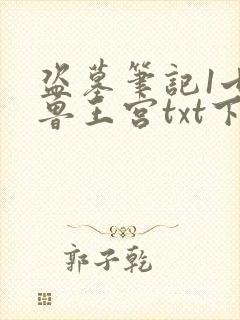 盜墓筆記1七
魯王宮txt下
郭子乾